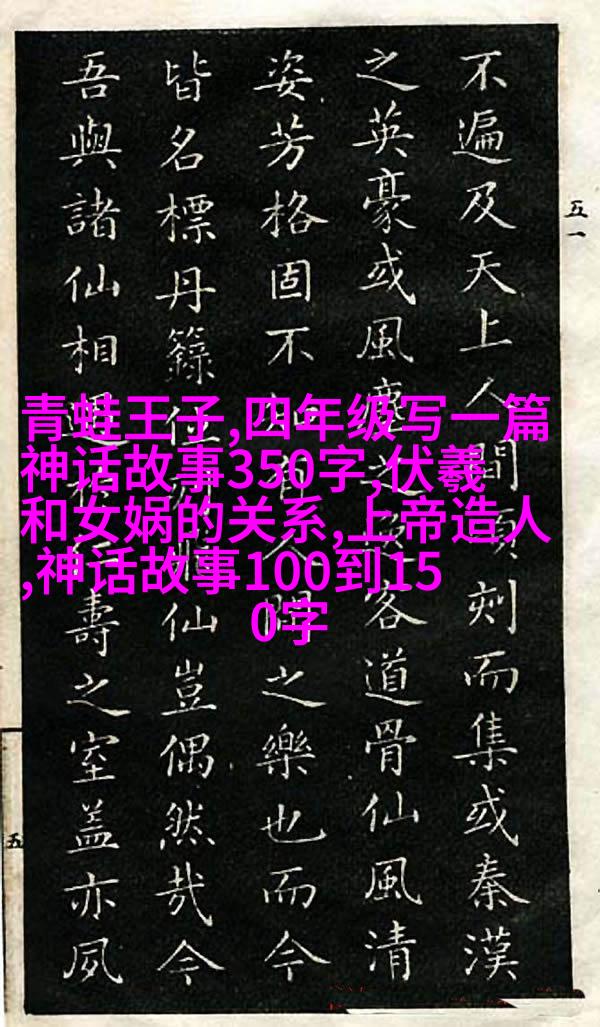 青蛙王子,四年级写一篇
神话故事350字,伏羲
和女娲的关系,上帝造人
,神话故事100到15
0字
五一
不遍及天上人間頃刻而集或秦漢
之英豪或風塵之客道骨仙風清
姿芳格固不知有人間之樂也而今
皆名標丹籙位仙豈偶然哉今
吾與諸仙相遇壽之室蓋亦夙
五